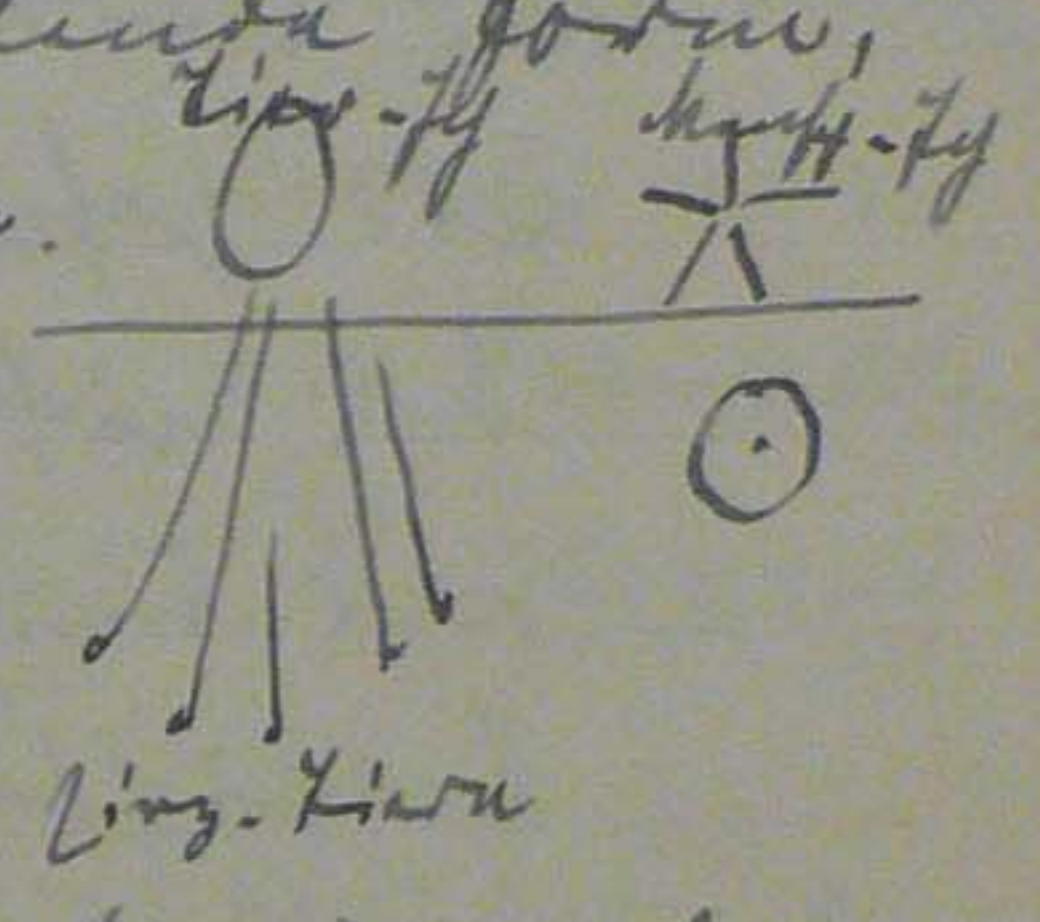 Form,
Tier-Ich Mensch-Ich
Einz-Tiere